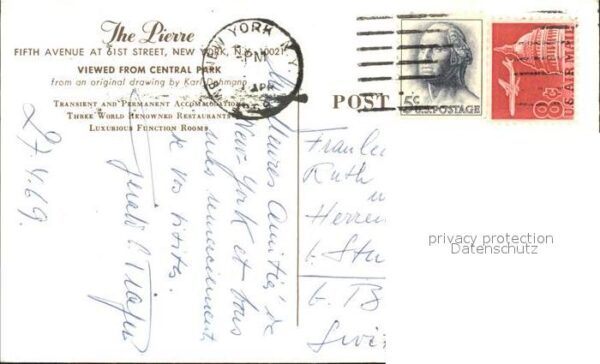 The Pierre
FIFTH AVENUE AT 61ST STREET, NEW YORK, N.Y. 10021
VIEWED FROM CENTRAL PARK
from an original drawing by Karl Dehmann
TRANSIENT AND PERMANENT ACCOMMODATIONS
THREE WORLD RENOWNED RESTAURANTS
LUXURIOUS FUNCTION ROOMS
NEW YORK, N.Y.
PM
APR
POST
5¢
U.S. POSTAGE
8¢
U.S. AIR MAIL
27.4.69.
Meilleures Amitiés de
New-York et tous
mes remerciements
de vos
Ruth
Herren
privacy protection
Datenschutz